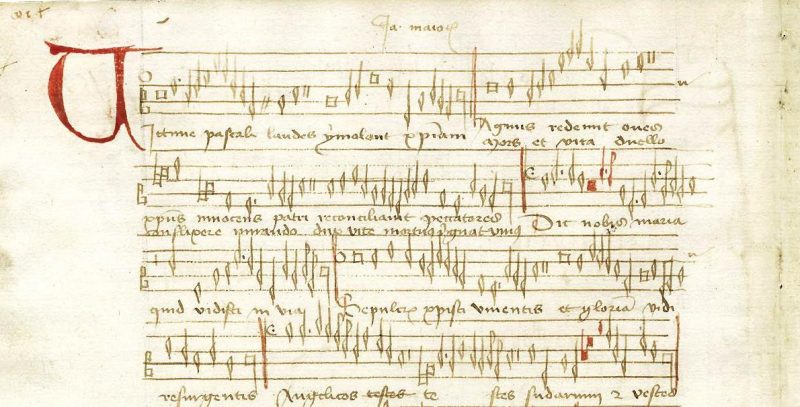 Victime pascali laudes ymolent xpiani Agnus redemit oves
Mors et vita duello
xpus innocens patri reconciliavit peccatores
conflixere mirando dux vite mortuus regnat vivus Dic nobis maria
quid vidisti in via Sepulcrum xpisti viventis et gloriam vidi
resurgentis Angelicos testes te stes sudarium z vestes